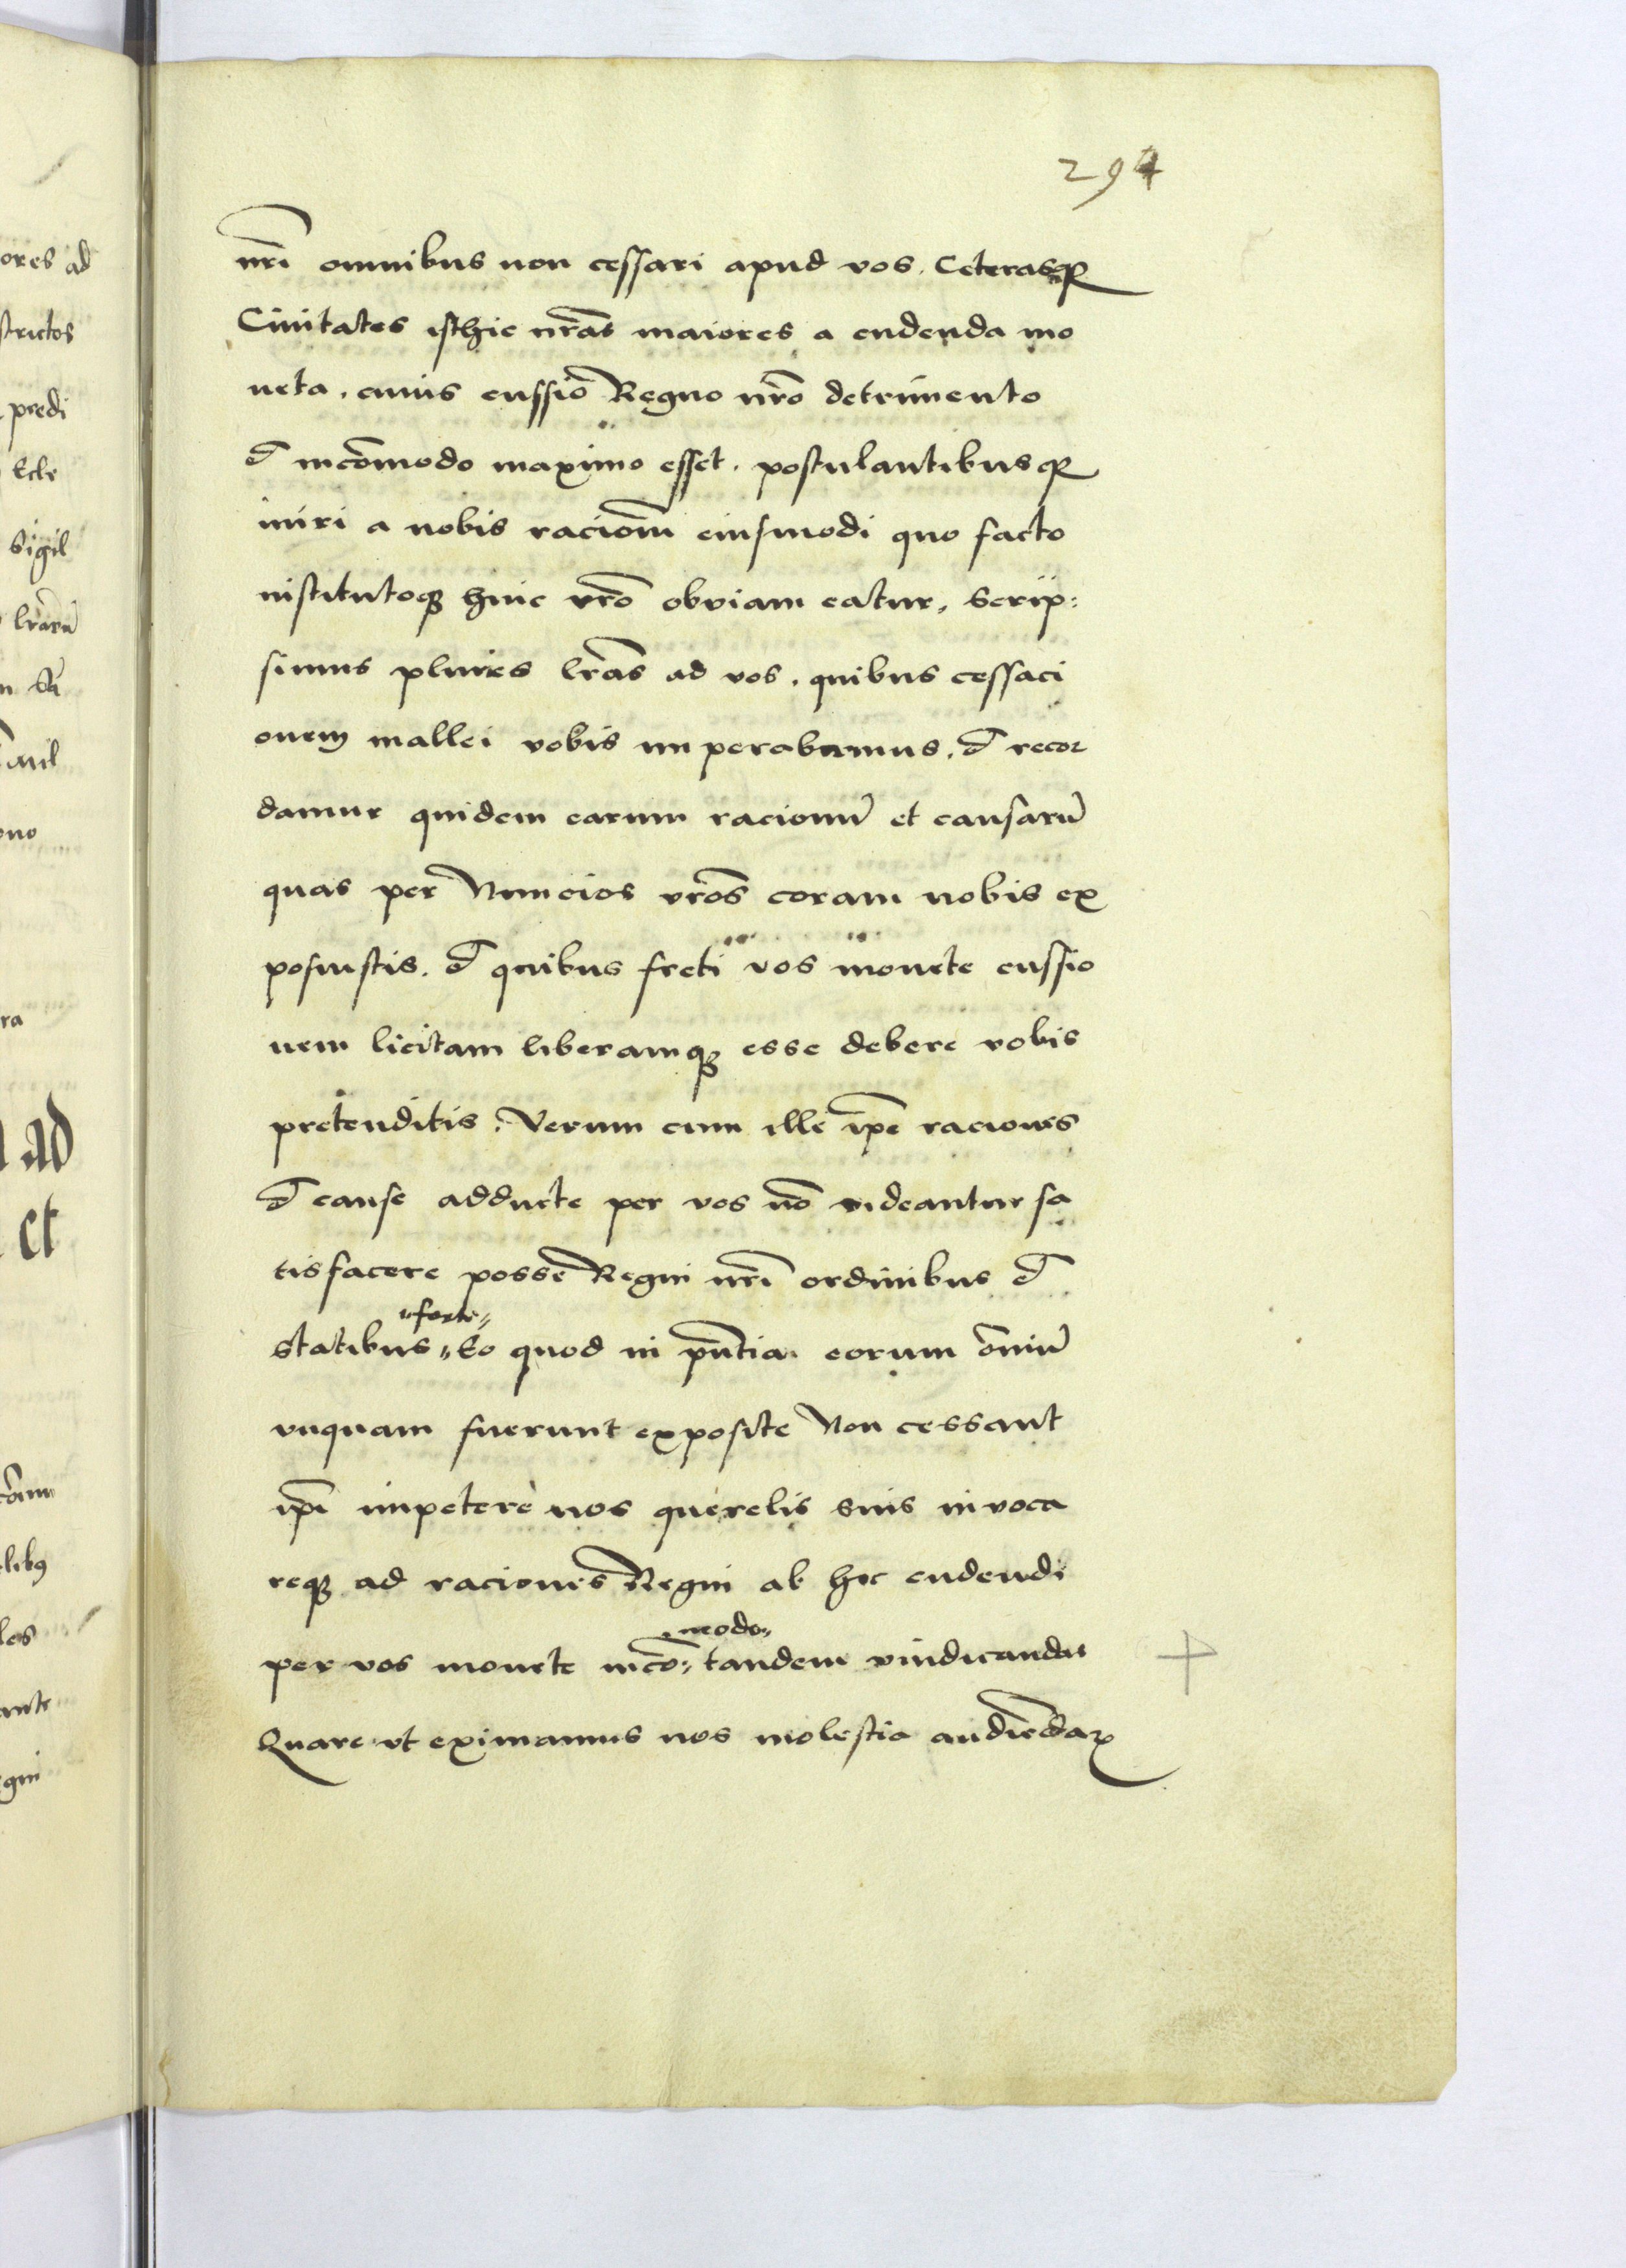 294
nr̄i omnibus non cessari apud vos. Ceterasqꝫ
Ciuitates isthic nr̄as maiores a cudenda mo
neta. cuius cussio Regno nr̄o detrimento
et incōmodo maximo esset. postulantibusqꝫ
iniri a nobis racionē eiusmodi quo facto
institutoqꝫ huic vr̄o obviam eatur, Scrip:
simus plures lr̄as ad vos. quibus cessaci
onem mallei vobis imperabamus. et recor
damur quidem earum racionū et causarū
quas per Nuncios vr̄os coram nobis ex
posuistis. et quibus freti vos monete cussio
nem licitam liberamqꝫ esse debere vobis
pretenditis. Verum cum ille ip̄e raciones
et cause adducte per vos nō videantur sa
tisfacere posse Regni nr̄i ordinibus et
"forte"
Statibus, Eo quod in pn̄tia eorum om̄iū
vnquam fuerunt exposite Non cessant
ip̄i impetere nos querelis suis in voca
reqꝫ ad raciones Regni ab hoc cudendi
modo
per vos monete incō: tandem vindicandas
Quare vt eximamus nos molestia audiēdaꝝ
ores ad
strictos
predi
Ecle
Sigil
lr̄arū
ono
ra
ad
et
les
gni